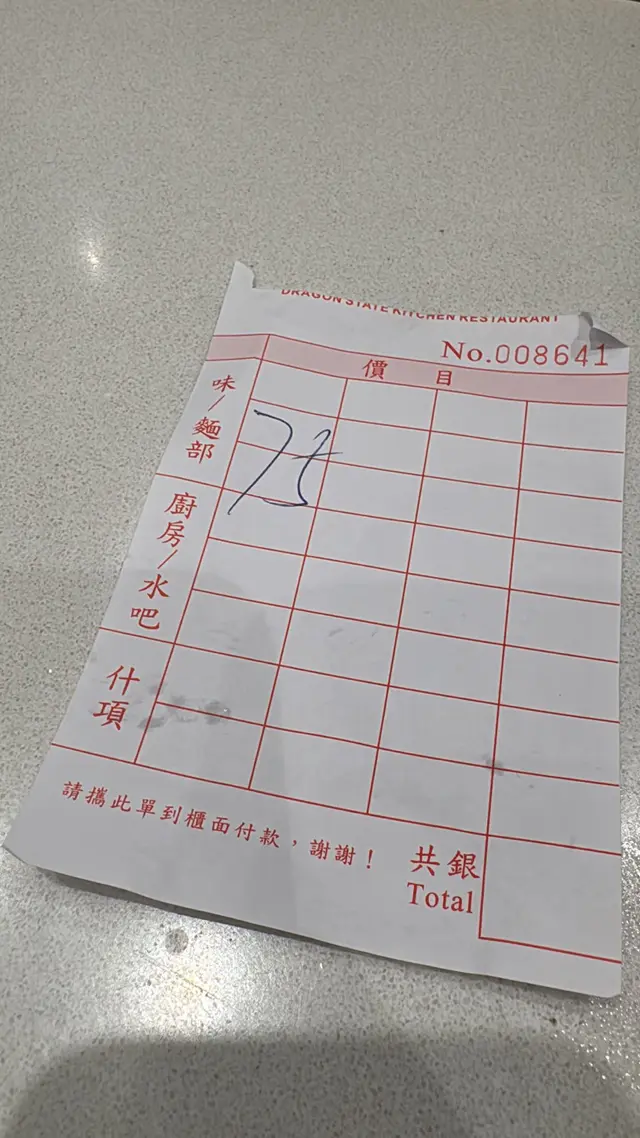 DRAGON STATE KITCHEN RESTAURANT
No.008641
價 目
味/麵部
75
廚房/水吧
什項
請攜此單到櫃面付款，謝謝！
共銀
Total